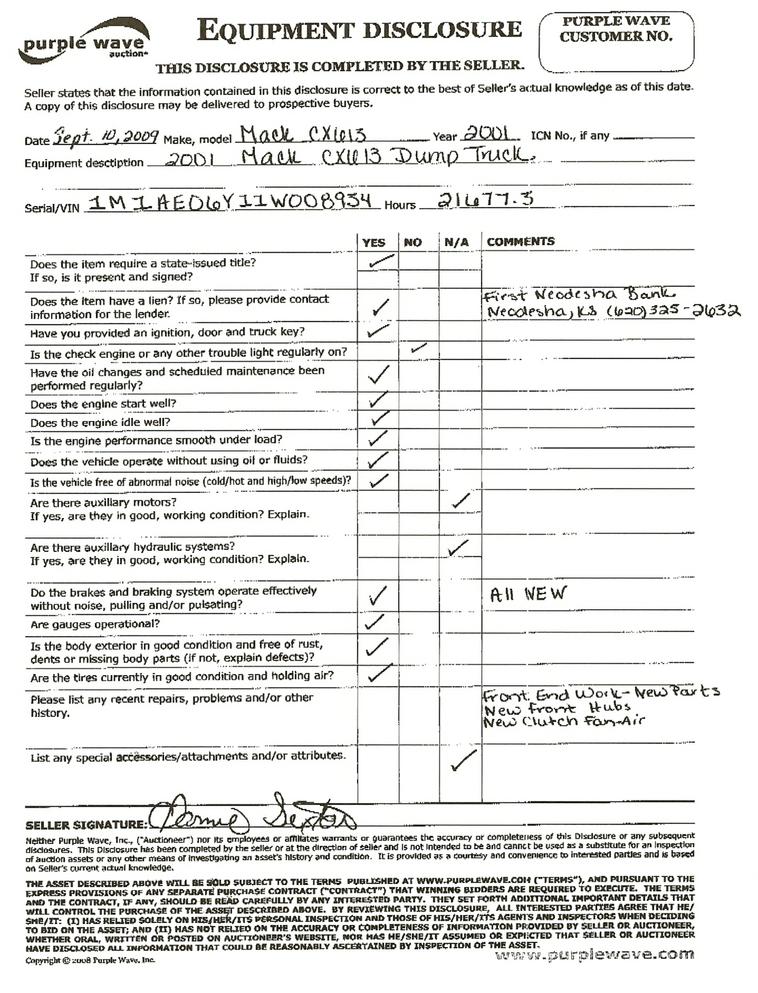 purple wave
auction
EQUIPMENT DISCLOSURE
PURPLE WAVE
CUSTOMER NO.
THIS DISCLOSURE IS COMPLETED BY THE SELLER.
Seller states that the information contained in this disclosure is correct to the best of Seller's actual knowledge as of this date.
A copy of this disclosure may be delivered to prospective buyers.
Date Sept. 10, 2009 Make, model Mack CX613 Year 2001 ICN No., if any
Equipment desctiption 2001 Mack CX613 Dump Truck.
Serial/VIN 1M1AE06Y11W008934 Hours 21677.3
YES NO N/A COMMENTS
Does the item require a state-issued title? ✓
If so, is it present and signed?
Does the item have a lien? If so, please provide contact First Neodesha Bank
information for the lender. ✓ Neodesha, KS (620) 325-2632
Have you provided an ignition, door and truck key? ✓
Is the check engine or any other trouble light regularly on? ✓
Have the oil changes and scheduled maintenance been
performed regularly? ✓
Does the engine start well? ✓
Does the engine idle well? ✓
Is the engine performance smooth under load? ✓
Does the vehicle operate without using oil or fluids? ✓
Is the vehicle free of abnormal noise (cold/hot and high/low speeds)? ✓
Are there auxillary motors? ✓
If yes, are they in good, working condition? Explain.
Are there auxillary hydraulic systems? ✓
If yes, are they in good, working condition? Explain.
Do the brakes and braking system operate effectively All NEW
without noise, pulling and/or pulsating? ✓
Are gauges operational? ✓
Is the body exterior in good condition and free of rust,
dents or missing body parts (if not, explain defects)? ✓
Are the tires currently in good condition and holding air? ✓
Please list any recent repairs, problems and/or other Front End Work - New Parts
history. New Front Hubs
New Clutch Fan-Air
List any special accessories/attachments and/or attributes. ✓
SELLER SIGNATURE:
Neither Purple Wave, Inc., ("Auctioneer") nor its employees or affiliates warrants or guarantees the accuracy or completeness of this Disclosure or any subsequent
disclosures. This Disclosure has been completed by the seller or at the direction of seller and is not intended to be and cannot be used as a substitute for an inspection
of auction assets or any other means of investigating an asset's history and condition. It is provided as a courtesy and convenience to interested parties and is based
on Seller's current actual knowledge.
THE ASSET DESCRIBED ABOVE WILL BE SOLD SUBJECT TO THE TERMS PUBLISHED AT WWW.PURPLEWAVE.COM ("TERMS"), AND PURSUANT TO THE
EXPRESS PROVISIONS OF ANY SEPARATE PURCHASE CONTRACT ("CONTRACT") THAT WINNING BIDDERS ARE REQUIRED TO EXECUTE. THE TERMS
AND THE CONTRACT, IF ANY, SHOULD BE READ CAREFULLY BY ANY INTERESTED PARTY. THEY SET FORTH ADDITIONAL IMPORTANT DETAILS THAT
WILL CONTROL THE PURCHASE OF THE ASSET DESCRIBED ABOVE. BY REVIEWING THIS DISCLOSURE, ALL INTERESTED PARTIES AGREE THAT HE/
SHE/IT: (I) HAS RELIED SOLELY ON HIS/HER/ITS PERSONAL INSPECTION AND THOSE OF HIS/HER/ITS AGENTS AND INSPECTORS WHEN DECIDING
TO BID ON THE ASSET; AND (II) HAS NOT RELIED ON THE ACCURACY OR COMPLETENESS OF INFORMATION PROVIDED BY SELLER OR AUCTIONEER,
WHETHER ORAL, WRITTEN OR POSTED ON AUCTIONEER'S WEBSITE, NOR HAS HE/SHE/IT ASSUMED OR EXPECTED THAT SELLER OR AUCTIONEER
HAVE DISCLOSED ALL INFORMATION THAT COULD BE REASONABLY ASCERTAINED BY INSPECTION OF THE ASSET.
Copyright © 2008 Purple Wave, Inc. www.purplewave.com